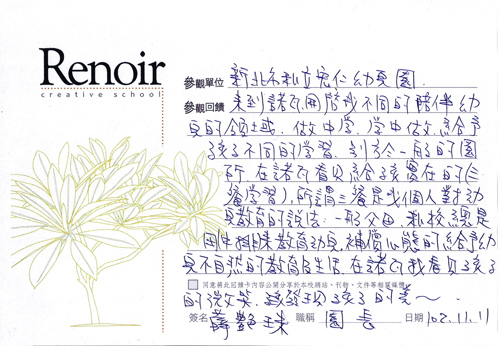 Renoir
creative school
參觀單位 新北市私立宏仁幼兒園.
參觀回饋 來到諾瓦開啟我不同的陪伴幼
兒的領域. 做中學. 學中做. 給予
孩子不同的學習. 別於一般的園
所. 在諾瓦看見給孩實在的(三
餐學習). 所謂三餐是我個人對幼
兒教育的說法. 一般父母. 私校總是
用 教育幼兒. 補償心態的給予幼
兒不自然的教育與生活. 在諾瓦我看見孩子
同意將此回饋卡內容公開分享於本校網站、刊物、文件等相關媒體
的微笑. 我發現孩子的美～.
簽名 薛艷珠 職稱 園長 日期 102.11.11